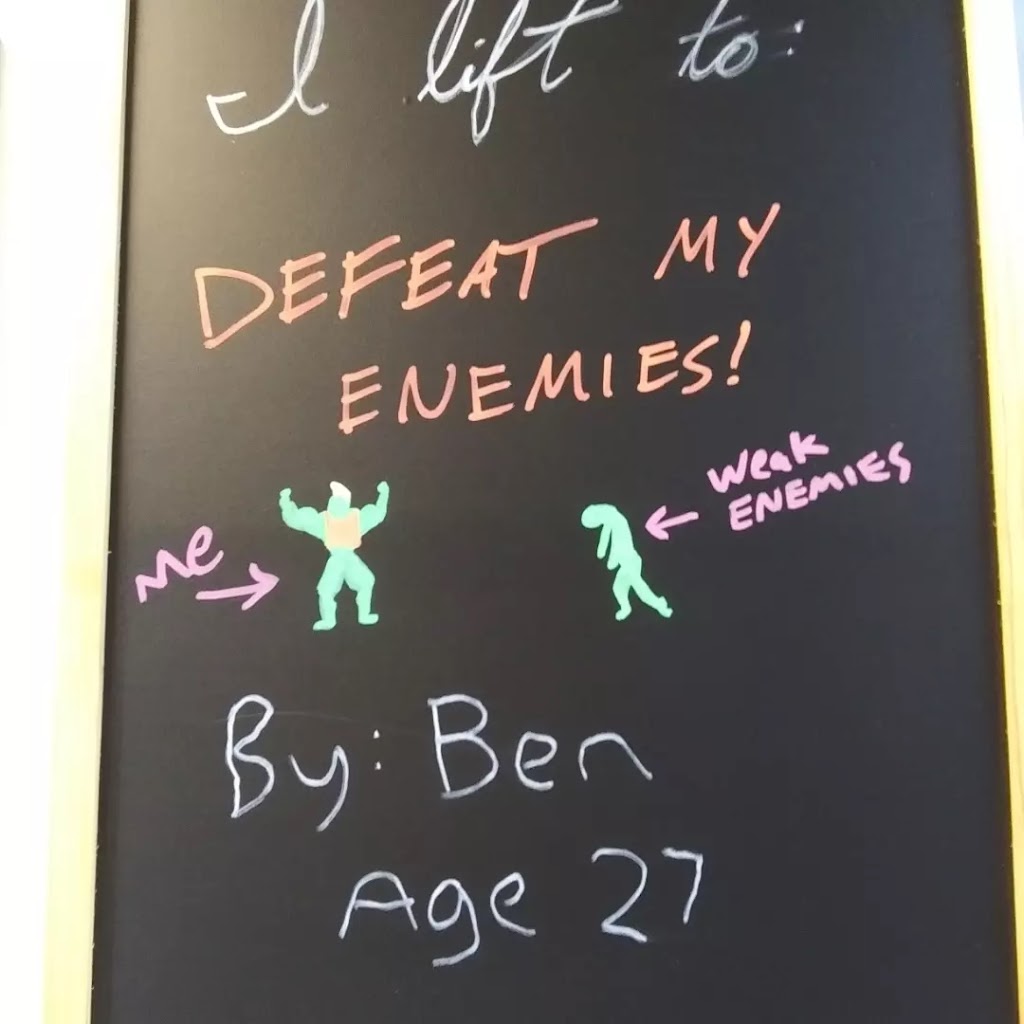 I lift to:
DEFEAT MY
ENEMIES!
weak
ENEMIES
Me
By: Ben
Age 27